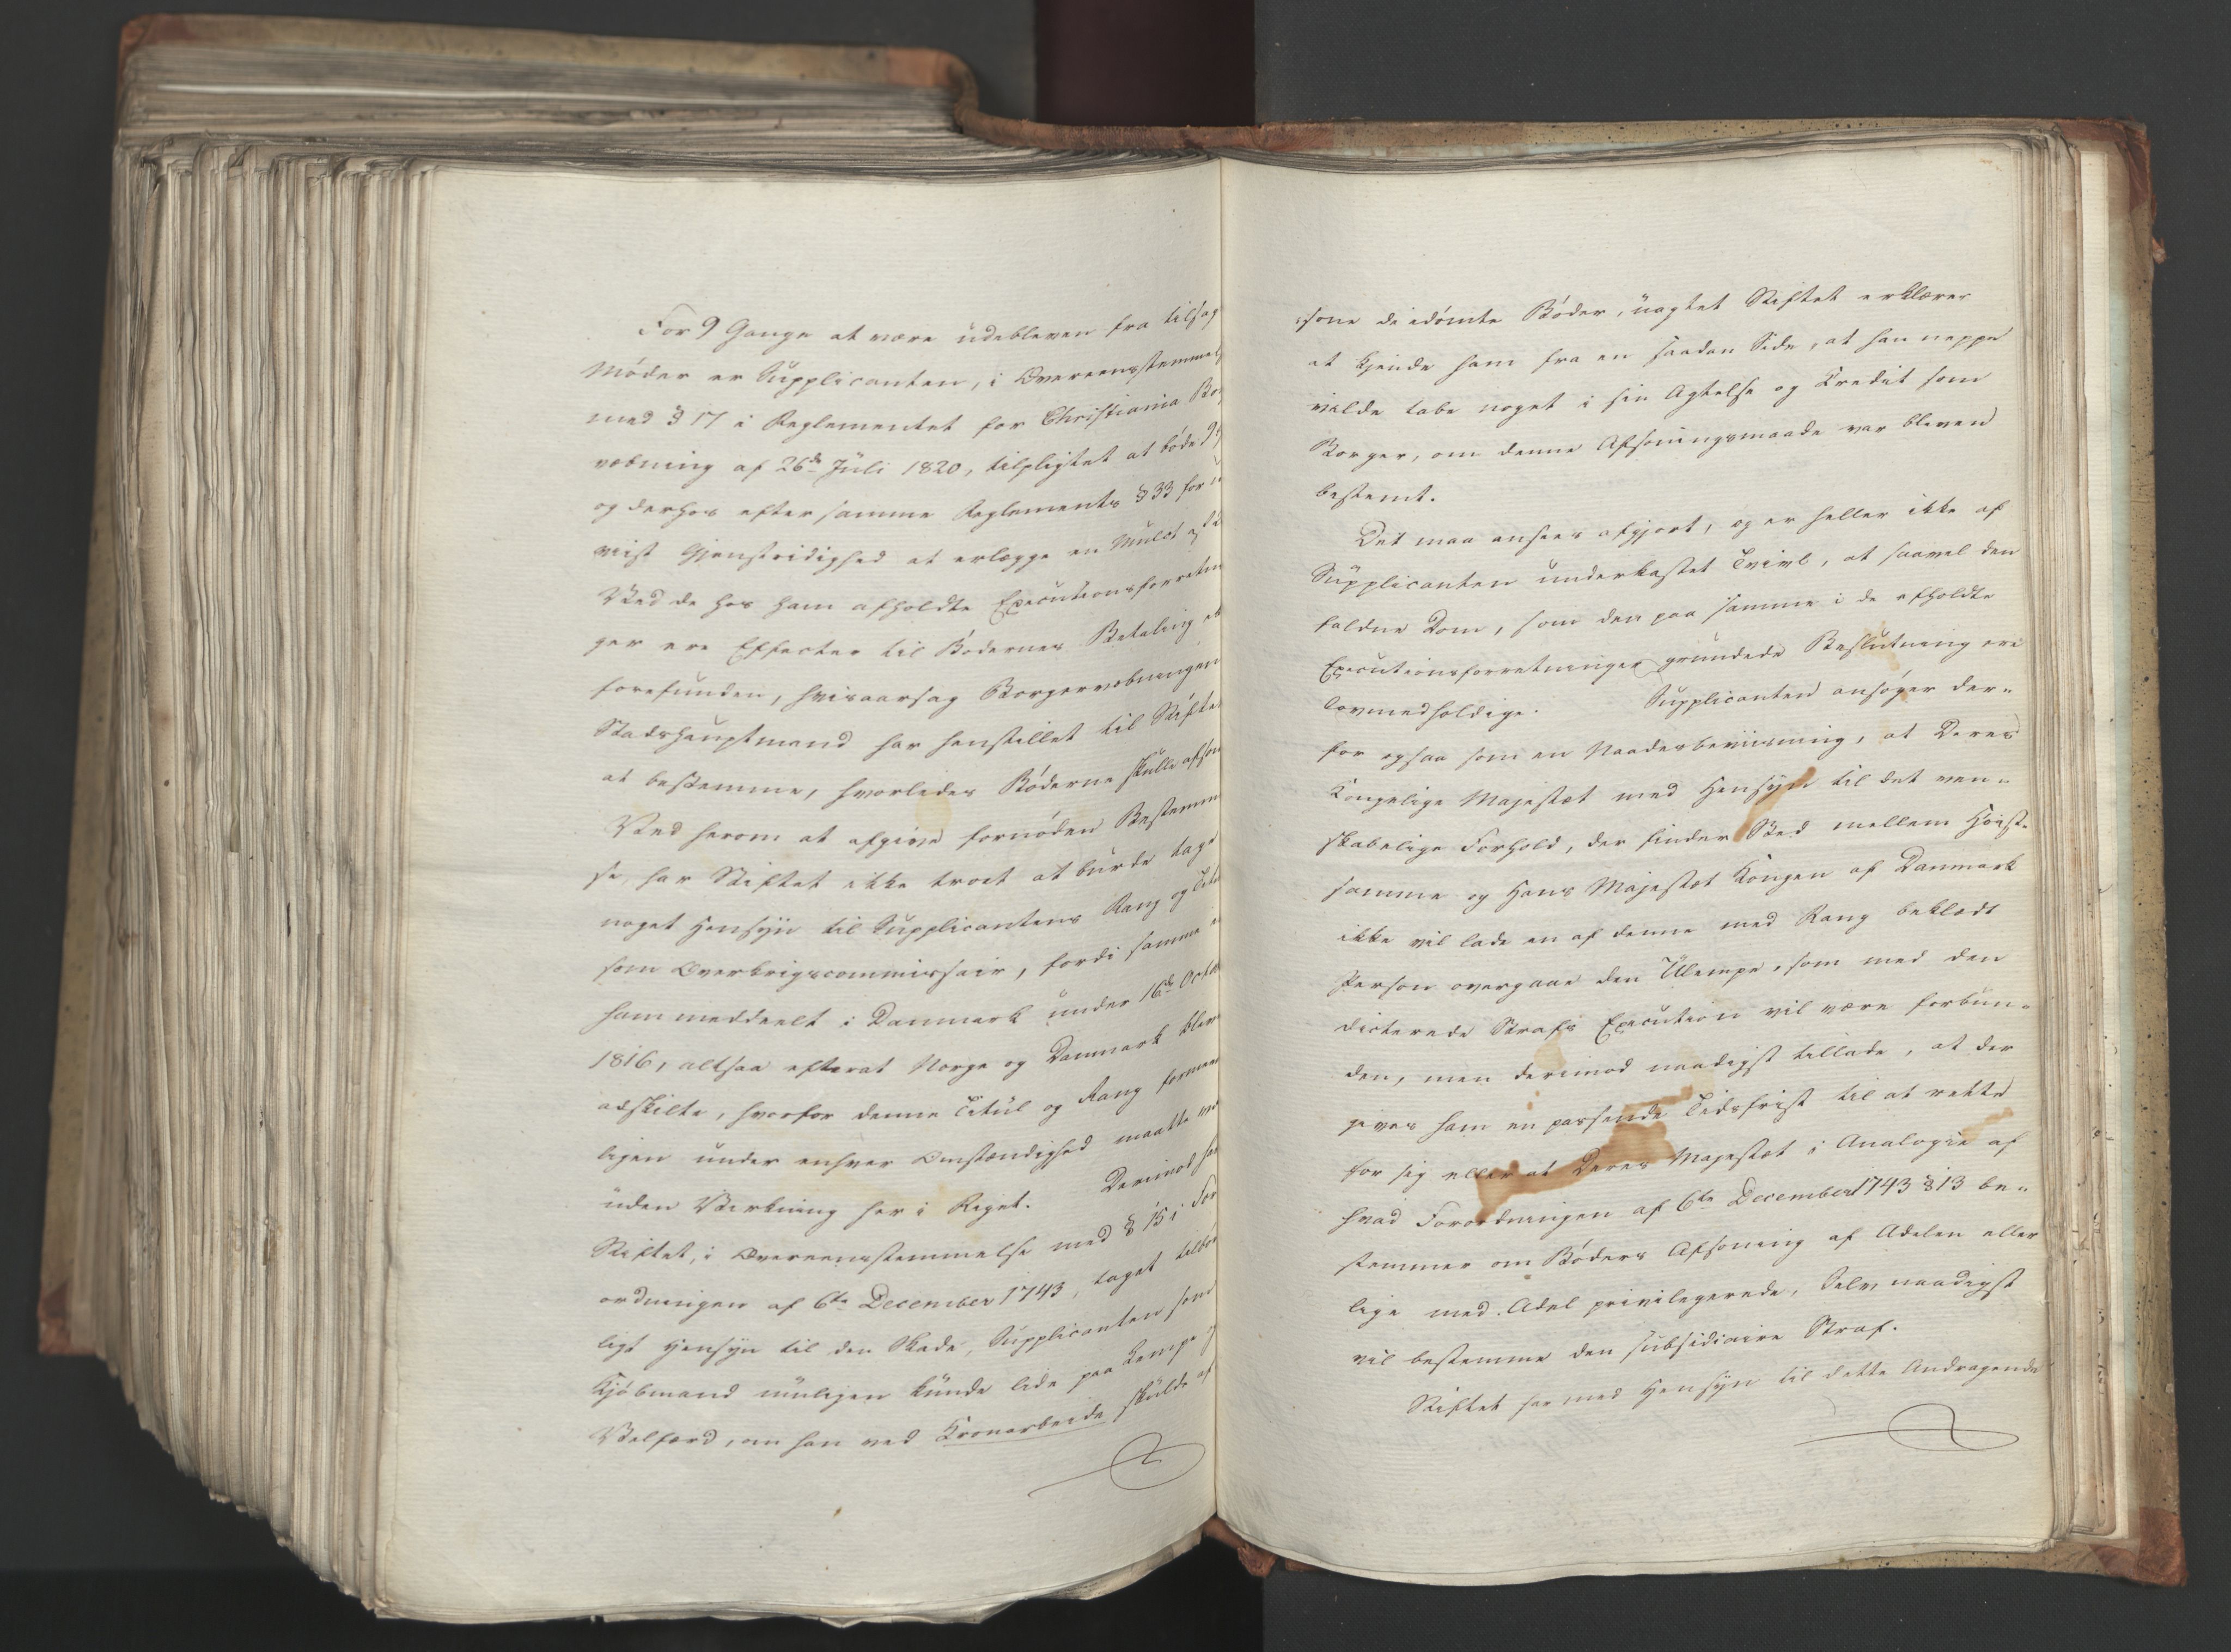 For 9 Gange at være udebleven fra tilsag
Møder er Supplicanten, i Overeensstemmel
med § 17 i Reglementet for Christiania Bor
væbning af 26de Juli 1820, tilpligtet at bøde 9
og derhos efter samme Reglements § 33 for u
viist Gjenstridighed at erlægge en Mulct af
Ved de hos ham afholdte Executionsforretnin
ger ere Effecter til Bødernes Betaling ei
forefunden, hvisaarsag Borgervæbningen
Stadshauptmand har henstillet til Stifte
at bestemme, hvorledes Bøderne skulle afson
Ved herom at afgive fornøden Bestemm
se, har Stiftet ikke troet at burde tage
noget Hensyn til Supplicantens Rang og Titel
som Overkrigscommissair, fordi samme e
ham meddeelt i Danmark under 16de Octo
1816, altsaa efterat Norge og Danmark blev
adskilte, hvorfor denne Titul og Rang formeen
ligen under enhver Omstændighed maatte væ
uden Virkning her i Riget. Derimod har
Stiftet, i Overeensstemmelse med § 15 i For
ordningen af 6te December 1743, taget tilbør
ligt Hensyn til den Skade, Supplicanten som
Kjøbmand muligen kunde lide paa Lempe og
Velfærd, om han ved Kronarbeide skulde af
sone de idømte Bøder, uagtet Stiftet erklærer
at kjende ham fra en saadan Side, at han neppe
vilde tabe noget i sin Agtelse og Credit som
Borger, om denne Afsoningsmaade var bleven
bestemt.
Det maa ansees afgjort, og er heller ikke af
Supplicanten underkastet Tvivl, at saavel den
faldne Dom, som den paa samme i de afholdte
Executionsforretninger grundede Beslutning ere
lovmedholdige. Supplicanten ansøger der-
for ogsaa som en Naadesbeviisning, at Deres
Kongelige Majestæt med Hensyn til det ven-
skabelige Forhold, der finder Sted mellem Høist-
samme og Hans Majestæt Kongen af Danmark
ikke vil lade en af denne med Rang beklædt
Person overgaae den Ulempe, som med den
dicterede Strafs Execution vil være forbun-
den, men derimod naadigst tillade, at der
gives ham en passende Tidsfrist til at rette
for sig eller at Deres Majestæt i Analogie af
hvad Forordningen af 6te December 1743 § 13 be-
stemmer om Bøders Afsoning af Adelen eller
lige med Adel privilegerede, Selv naadigst
vil bestemme den subsidiaire Straf.
Stiftet har med Hensyn til dette Andragende